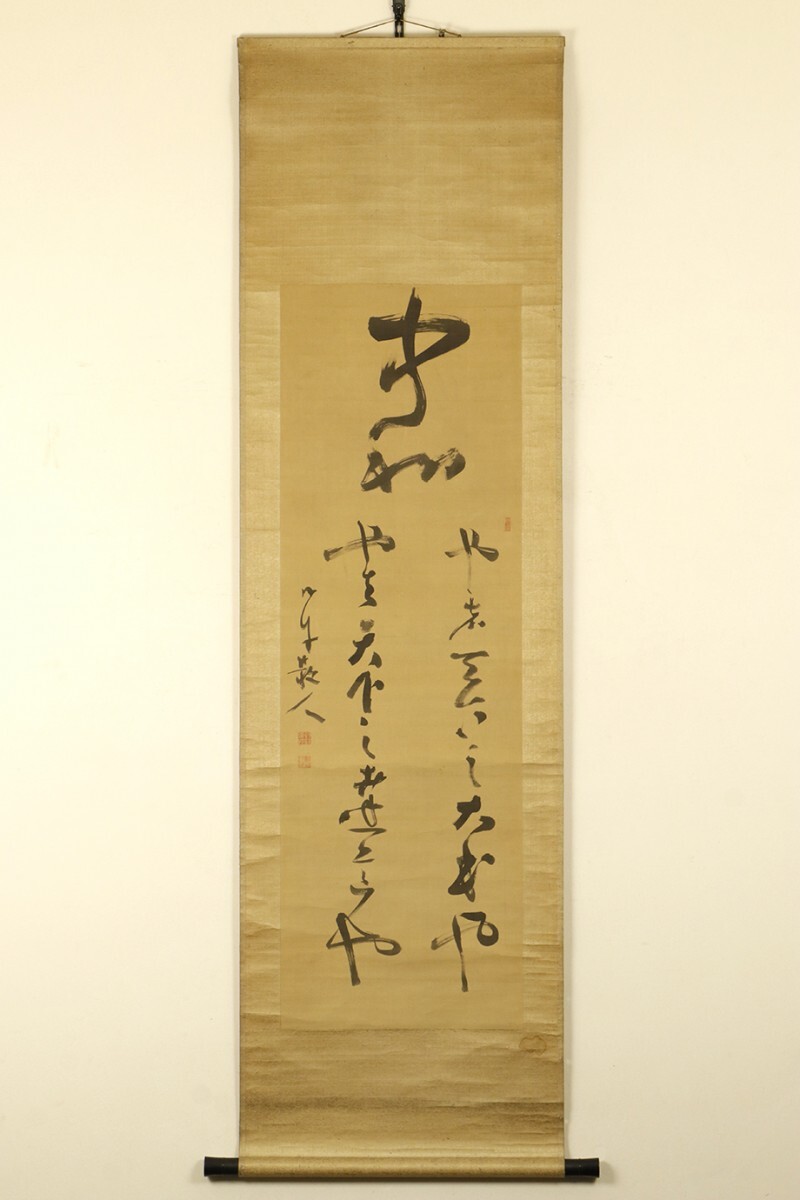 中和
也者天下之大本也
也者天下之達道也
散人